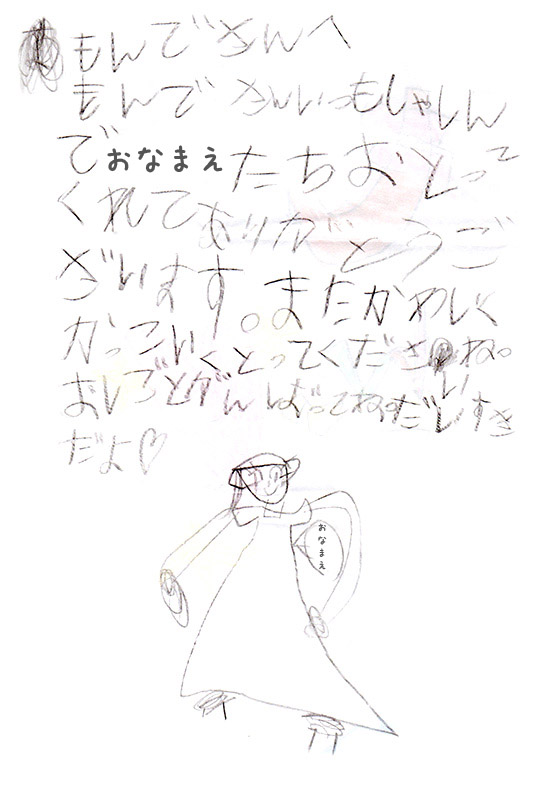 もんでさんへ
もんでさんいつもしゃしん
でおなまえたちおとって
くれてありがとうご
ざいます。またかわいく
かっこいくとってくださいね。
おしごとがんばってね。だいすき
だよ♡
おなまえ